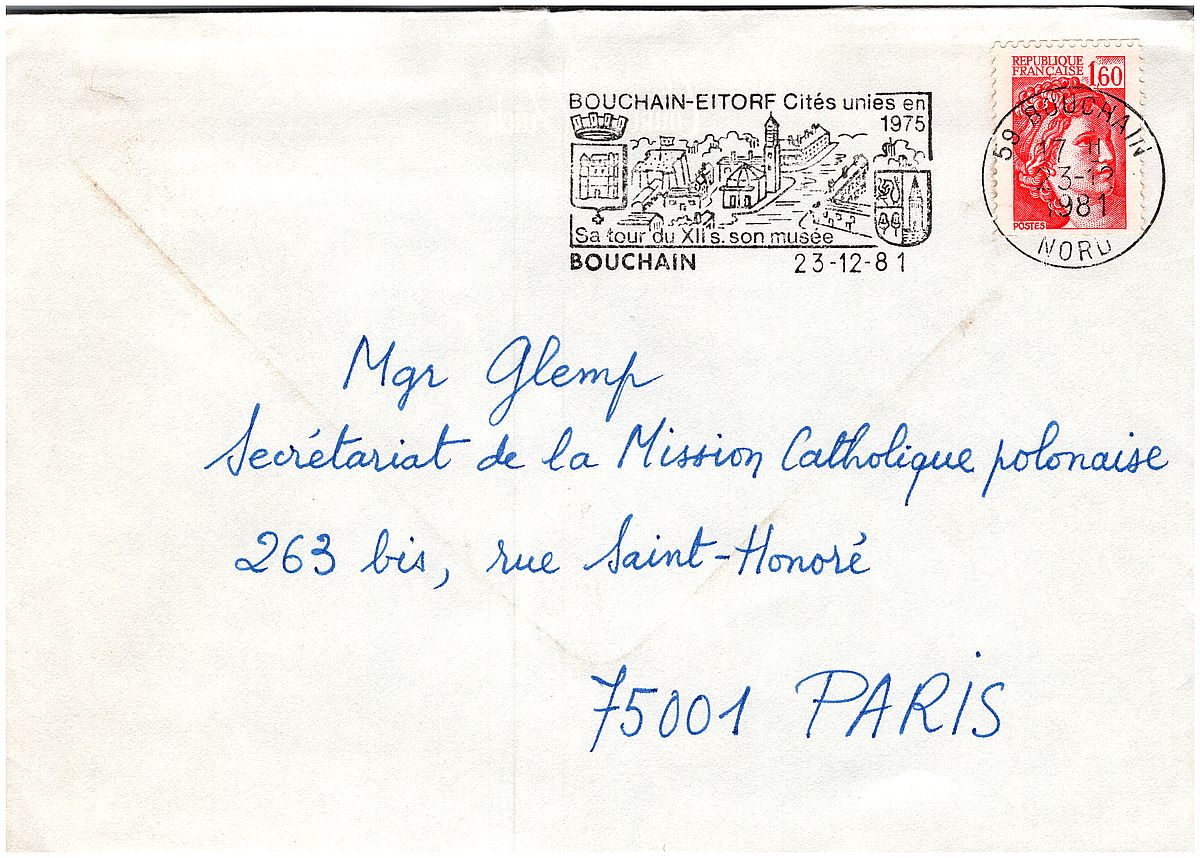 BOUCHAIN-EITORF Cités unies en
1975
Sa tour du XII s. son musée
BOUCHAIN 23-12-81
REPUBLIQUE
FRANÇAISE 1,60
POSTES
59 BOUCHAIN
1981
NORD
Mgr Glemp
Secrétariat de la Mission Catholique polonaise
263 bis, rue Saint-Honoré
75001 PARIS